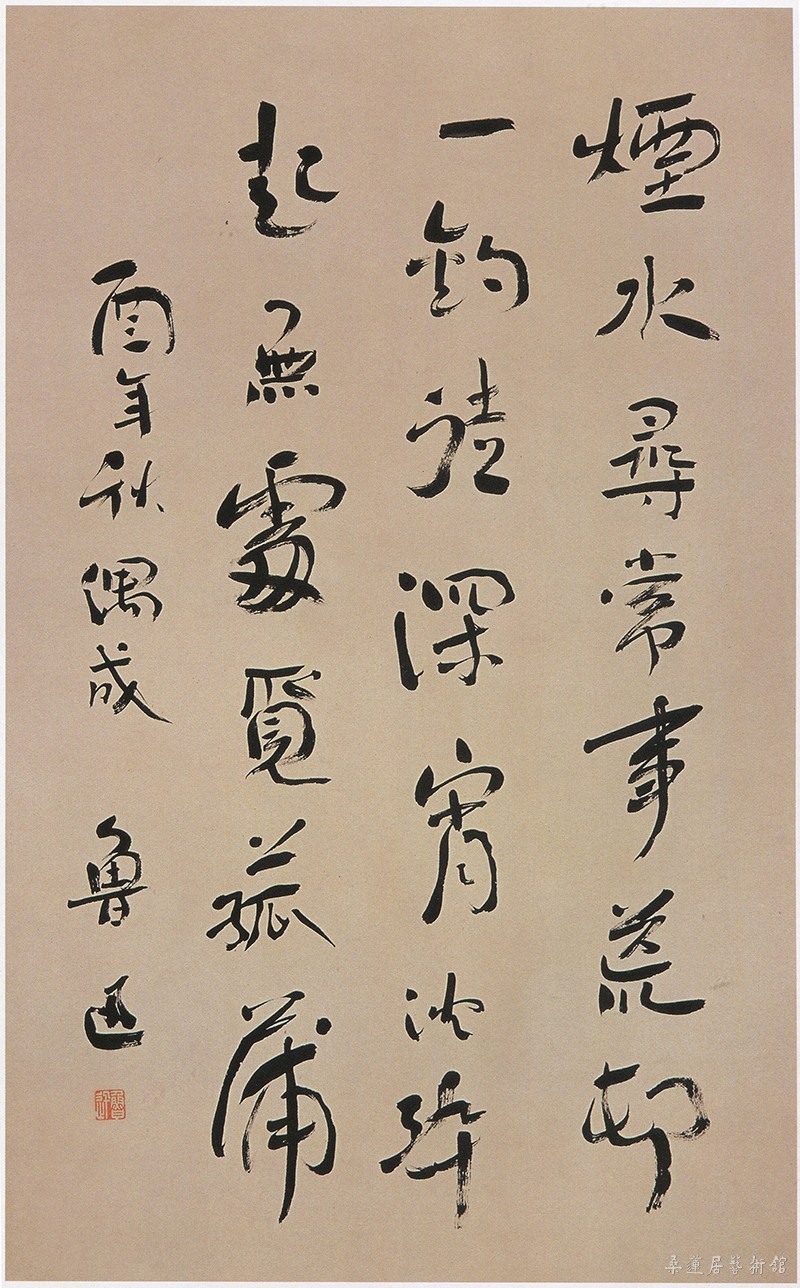 煙水尋常事荒邨
一釣徒深宵沈醉
起無處覓菰蒲
酉年秋偶成 魯迅
魯迅
桑蓮居藝術館